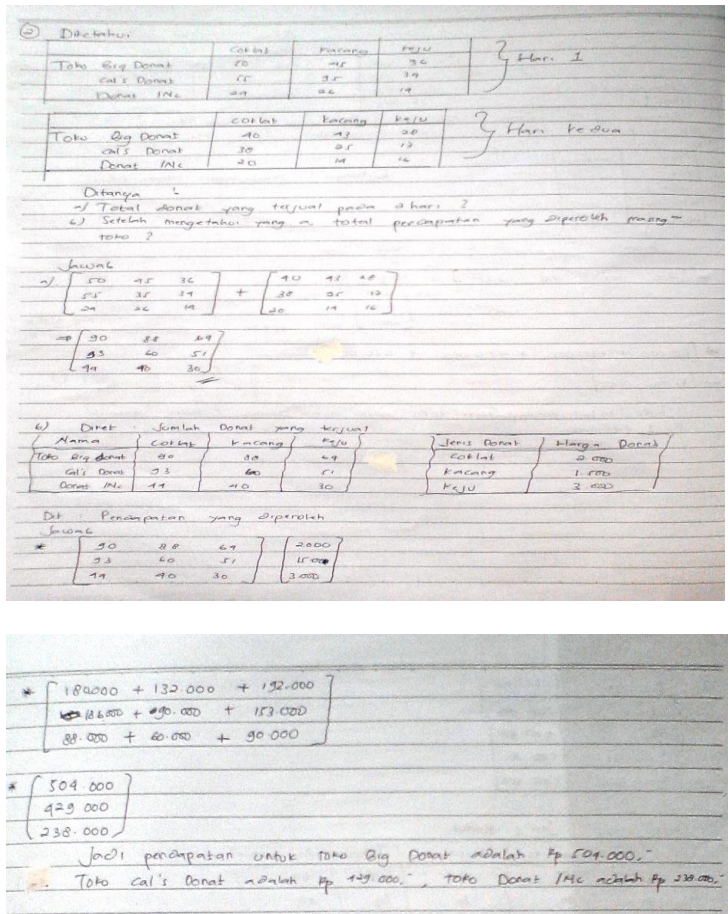 ② Diketahui
Coklat Kacang Keju
Toko Big Donat 50 45 36
Cal's Donat 55 35 39
Donat INc 24 26 14
} Hari 1
Coklat Kacang Keju
Toko Big Donat 40 43 28
Cal's Donat 38 25 12
Donat INc 20 14 16
} Hari kedua
Ditanya :
a) Total donat yang terjual pada 2 hari ?
b) Setelah mengetahui yang a, total pendapatan yang diperoleh masing-
toko ?
Jawab
a) [50 45 36] + [40 43 28]
[55 35 39] [38 25 12]
[24 26 14] [20 14 16]
⇒ [90 88 64]
[93 60 51]
[44 40 30]
b) Diket : Jumlah Donat yang terjual
Nama Coklat Kacang Keju
Toko Big donat 90 88 64
Cal's Donat 93 60 51
Donat INc 44 40 30
Jenis Donat Harga Donat
Coklat 2.000
Kacang 1.500
Keju 3.000
Dit : Pendapatan yang diperoleh
Jawab
* [90 88 64] [2.000]
[93 60 51] [1500]
[44 40 30] [3.000]
* [180.000 + 132.000 + 192.000]
[186.000 + 90.000 + 153.000]
[88.000 + 60.000 + 90.000]
* [504.000]
[429.000]
[238.000]
Jadi pendapatan untuk toko Big Donat adalah Rp 504.000,-
Toko Cal's Donat adalah Rp 429.000,-, toko Donat INc adalah Rp 238.000,-